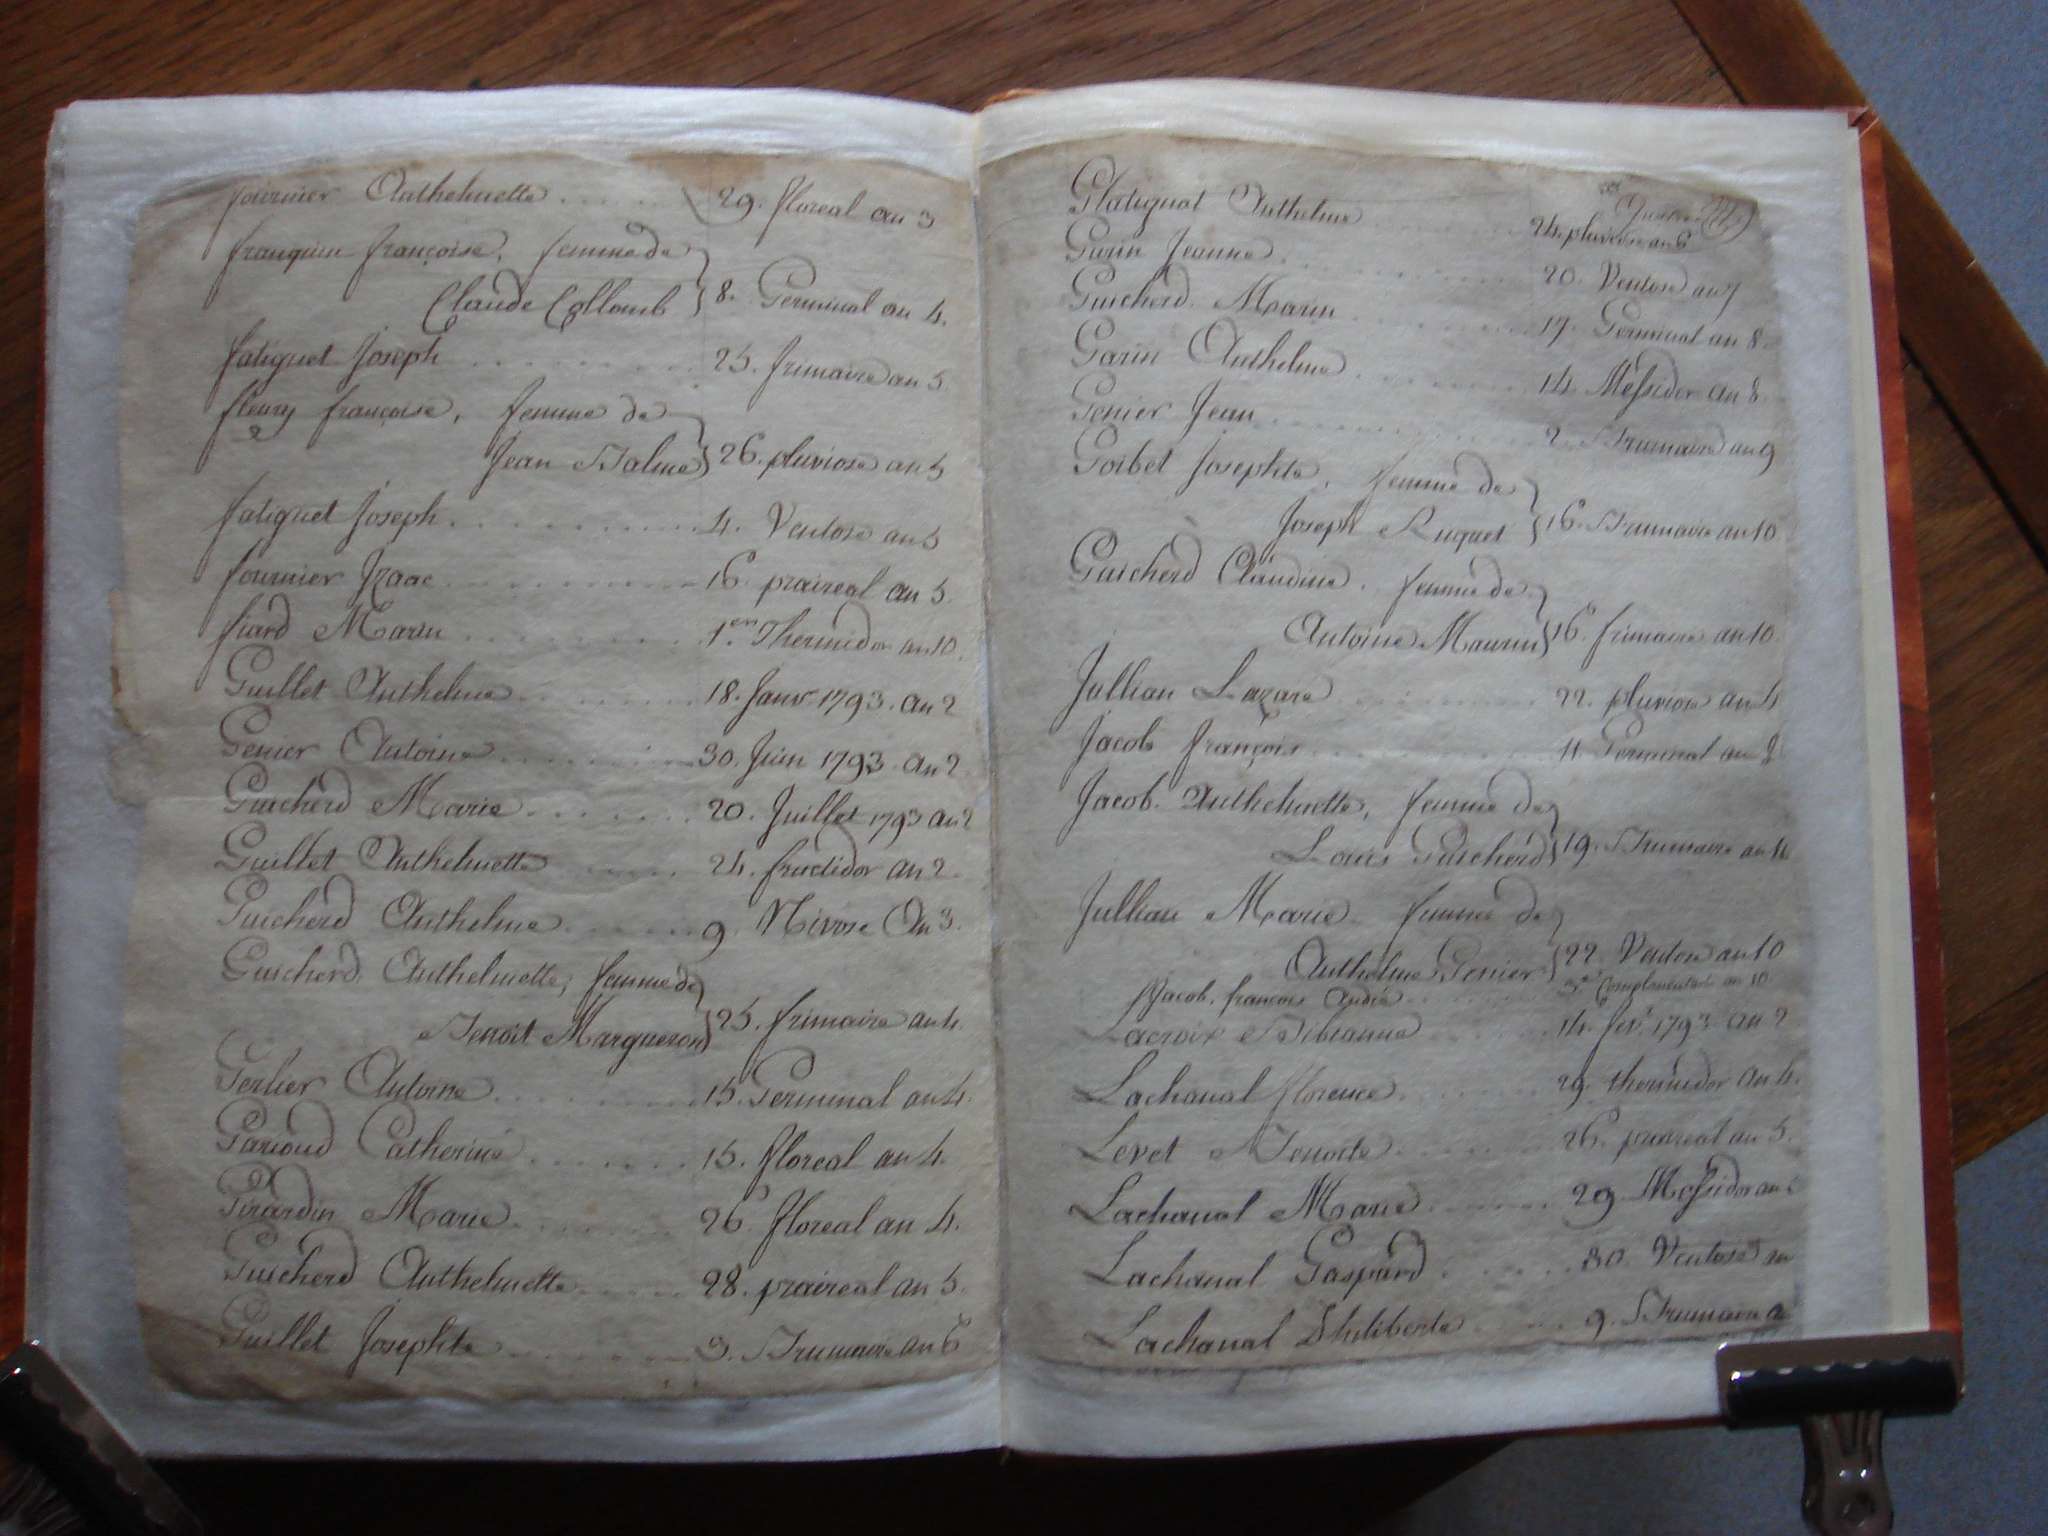 fournier Anthelmette 29. floreal an 3
franquin françoise, femme de
Claude Collomb 8. Germinal an 4.
fatiguet Joseph 25. frimaire an 5
fleury françoise, femme de
Jean Balme 26. pluviose an 5
fatiguet Joseph 4. Ventose an 5
fournier Izaac 16 praireal an 5.
fiard Marin 1er Thermidor an 10.
Guillet Anthelme 18. Janvr 1793. an 2
Genier Antoine 30. Juin 1793. an 2
Guicherd Marie 20. Juillet 1793 an 2
Guillet Anthelmette 24. fructidor an 2
Guicherd Anthelme 9 Nivose An 3.
Guicherd Anthelmette, femme de
Benoit Margueron 25. frimaire an 4.
Gerlier Antoine 15. Germinal an 4.
Garioud Catherine 15. floreal an 4.
Girardin Marie 26 floreal an 4.
Guicherd Anthelmette 28. praireal an 5.
Guillet Josephte 3. Brumaire an 6
Glatignat Anthelme 24. pluviose an 6
Gurin Jeanne 20. Ventose an 7
Guicherd Marin 17. Germinal an 8.
Garin Anthelme 14. Messidor an 8.
Genier Jean 2. Brumaire an 9
Goibet Josephte, femme de
Joseph Ruquet 16. Brumaire an 10
Guicherd Claudine, femme de
Antoine Maurin 16. frimaire an 10.
Jullian Lazare 22. pluviose an 4
Jacob françois 11 Germinal an
Jacob Anthelmette, femme de
Louis Guicherd 19. Brumaire an
Jullian Marie femme de
Anthelme Genier 22 Ventose an 10
Jacob. françois André 3e Complementaire an 10
Lacroix Bibianne 14. fevr 1793. an 2
Lachanal florence 29. thermidor an 4.
Levet Benoite 26. praireal an 5.
Lachanal Marie 29 Messidor an
Lachanal Gaspard 30. Ventose an
Lachanal Philiberte 9. Brumaire a